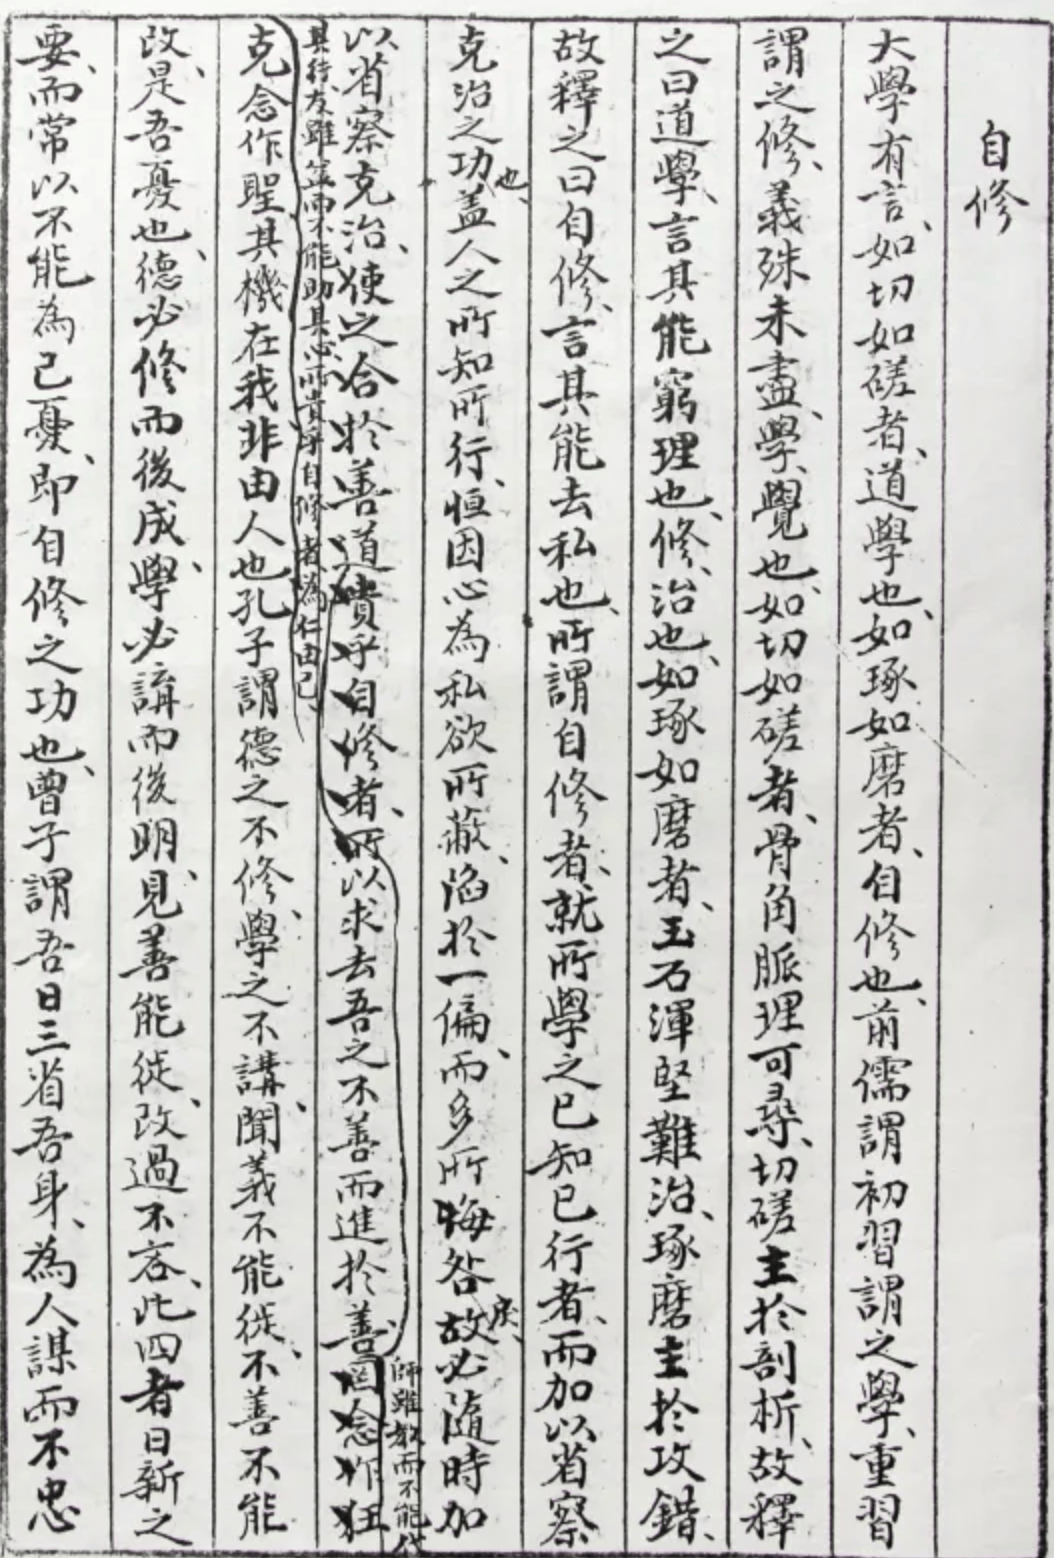 自修
大學有言、如切如磋者、道學也、如琢如磨者、自修也、前儒謂初習謂之學、重習
謂之修、義殊未盡、學、覺也、如切如磋者、骨角脈理可尋、切磋主於剖析、故釋
之曰道學、言其能窮理也、修、治也、如琢如磨者、玉石渾堅難治、琢磨主於攻錯、
故釋之曰自修、言其能去私也、所謂自修者、就所學之已知已行者、而加以省察
克治之功也、蓋人之所知所行、恒因心為私欲所蔽、陷於一偏、而多所悔咎戾、故必隨時加
以省察克治、使之合於善道、貴乎自修者、所以求去吾之不善而進於善、罔念作狂
師雖教而不能代
其待友雖益而不能助其心所貴乎自修者為仁由己
克念作聖其機在我非由人也孔子謂德之不修、學之不講、聞義不能徙、不善不能
改、是吾憂也、德必修而後成、學必講而後明、見善能徙、改過不吝、此四者日新之
要、而常以不能為己憂、即自修之功也、曾子謂吾日三省吾身、為人謀而不忠